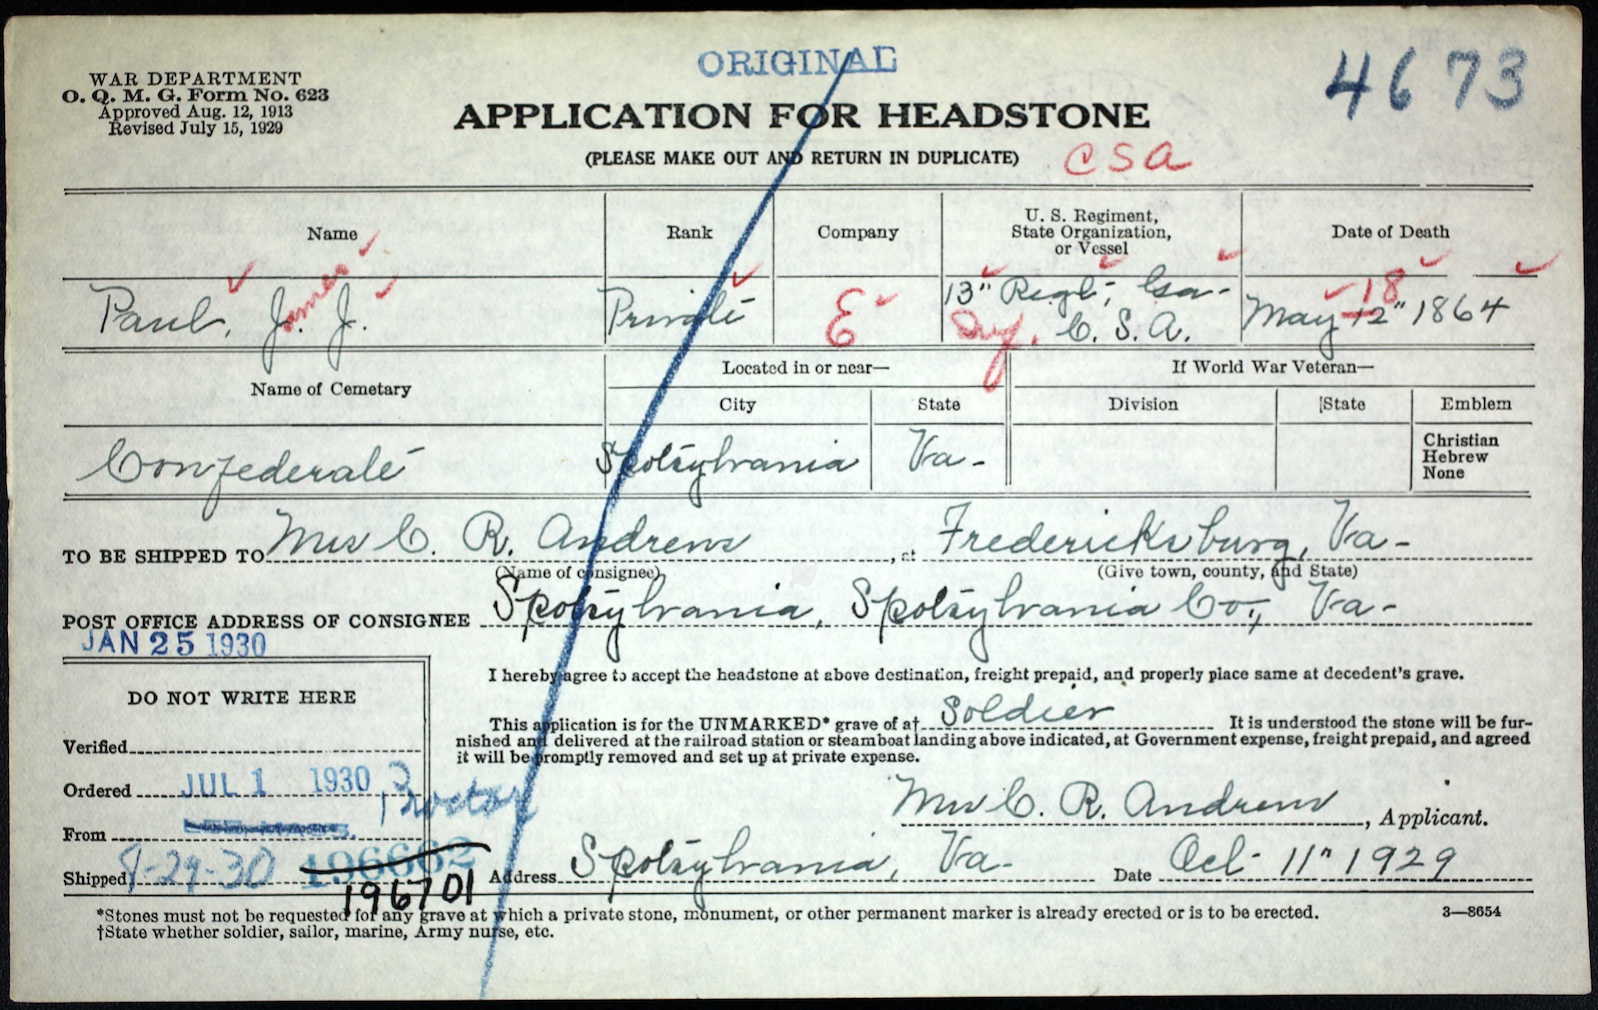 ORIGINAL
4673
WAR DEPARTMENT
O. Q. M. G. Form No. 623
Approved Aug. 12, 1913
Revised July 15, 1929
APPLICATION FOR HEADSTONE
(PLEASE MAKE OUT AND RETURN IN DUPLICATE)
CSA
Name
Rank
Company
U. S. Regiment,
State Organization,
or Vessel
Date of Death
Paul, J. J.
James
Private
E
13" Regt, Ga-
Inf. C. S. A.
May 12" 1864
18
Name of Cemetary
Located in or near—
If World War Veteran—
City
State
Division
State
Emblem
Confederate
Spotsylvania
Va-
Christian
Hebrew
None
TO BE SHIPPED TO Mrs C. R. Andrews, at Fredericksburg, Va-
(Name of consignee)
(Give town, county, and State)
POST OFFICE ADDRESS OF CONSIGNEE Spotsylvania, Spotsylvania Co, Va-
JAN 25 1930
DO NOT WRITE HERE
Verified
Ordered JUL 1 1930
Proctor
From
Shipped 8-29-30
196662
196701
I hereby agree to accept the headstone at above destination, freight prepaid, and properly place same at decedent's grave.
This application is for the UNMARKED* grave of a† Soldier It is understood the stone will be fur-
nished and delivered at the railroad station or steamboat landing above indicated, at Government expense, freight prepaid, and agreed
it will be promptly removed and set up at private expense.
Mrs C. R. Andrews, Applicant.
Address Spotsylvania, Va- Date Oct- 11" 1929
*Stones must not be requested for any grave at which a private stone, monument, or other permanent marker is already erected or is to be erected.
3—8654
†State whether soldier, sailor, marine, Army nurse, etc.